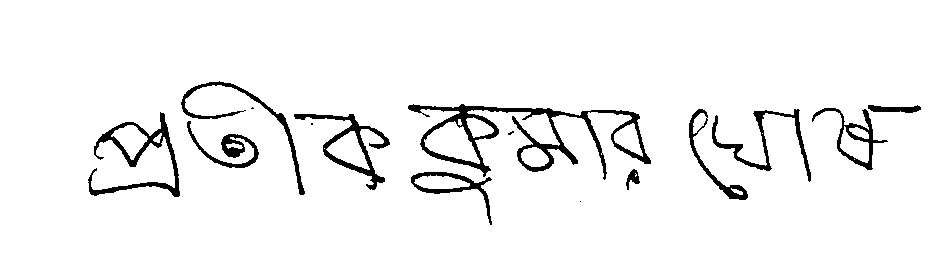 প্রতীক কুমার ঘোষ